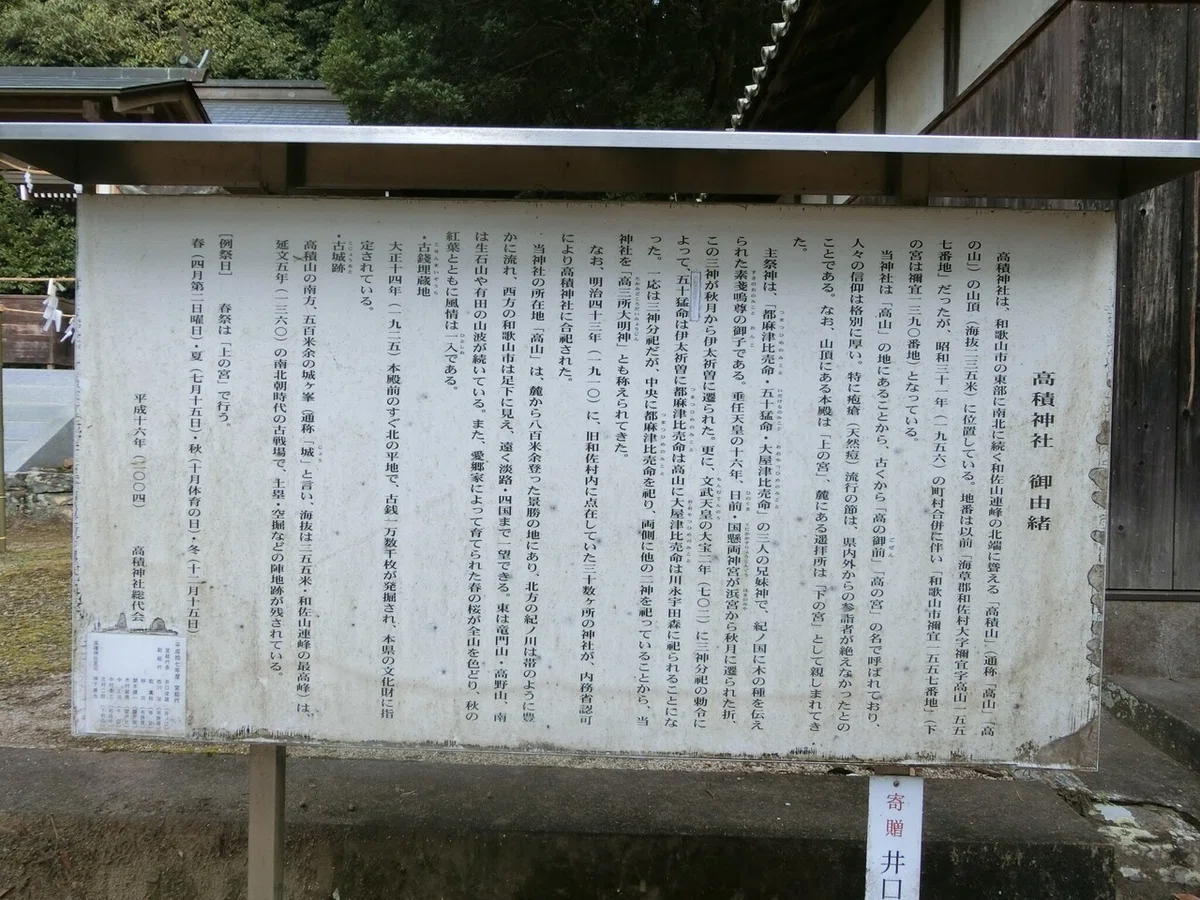 高積神社　御由緒
高積神社は、和歌山市の東部に南北に続く和佐山連峰の北端に聳える「高積山」（通称「高山」「高
の山）の山頂（海抜二三五米）に位置している。地番は以前「海草郡和佐村大字禰宜字高山一五五
七番地」だったが、昭和三十一年（一九五六）の町村合併に伴い「和歌山市禰宜一五五七番地」（下
の宮は禰宜一三九〇番地）となっている。
当神社は「高山」の地にあることから、古くから「高の御前」「高の宮」の名で呼ばれており、
人々の信仰は格別に厚い。特に疱瘡（天然痘）流行の節は、県内外からの参詣者が絶えなかったとの
ことである。なお、山頂にある本殿は「上の宮」、麓にある遥拝所は「下の宮」として親しまれてき
た。
主祭神は、「都麻津比売命・五十猛命・大屋津比売命」の三人の兄妹神で、紀ノ国に木の種を伝え
られた素戔嗚尊の御子である。垂任天皇の十六年、日前・国懸両神宮が浜宮から秋月に遷られた折、
この三神が秋月から伊太祈曽に遷られた。更に、文武天皇の大宝二年（七〇二）に三神分祀の勅令に
よって、五十猛命は伊太祈曽に都麻津比売命は高山に大屋津比売命は川永宇田森に祀られることにな
った。一応は三神分祀だが、中央に都麻津比売命を祀り、両側に他の二神を祀っていることから、当
神社を「高三所大明神」とも称えられてきた。
なお、明治四十三年（一九一〇）に、旧和佐村内に点在していた三十数ヶ所の神社が、内務省認可
により高積神社に合祀された。
当神社の所在地「高山」は、麓から八百米余登った景勝の地にあり、北方の紀ノ川は帯のように豊
かに流れ、西方の和歌山市は足下に見え、遠く淡路・四国まで一望できる。東は竜門山・高野山、南
は生石山や有田の山波が続いている。また、愛郷家によって育てられた春の桜が全山を色どり、秋の
紅葉とともに風情は一入である。
・古錢埋蔵地
大正十四年（一九二五）本殿前のすぐ北の平地で、古銭一万数千枚が発掘され、本県の文化財に指
定されている。
・古城跡
高積山の南方、五百米余の城ヶ峯（通称「城」と言い、海抜は二五五米・和佐山連峰の最高峰）は、
延文五年（一三六〇）の南北朝時代の古戦場で、土塁・空掘などの陣地跡が残されている。
［例祭日］　春祭は「上の宮」で行う。
春（四月第二日曜日）・夏（七月十五日）・秋（十月体育の日）・冬（十二月十五日）
平成十六年（二〇〇四）　高積神社総代会
平成拾七年度　宮総代
寄贈　井口